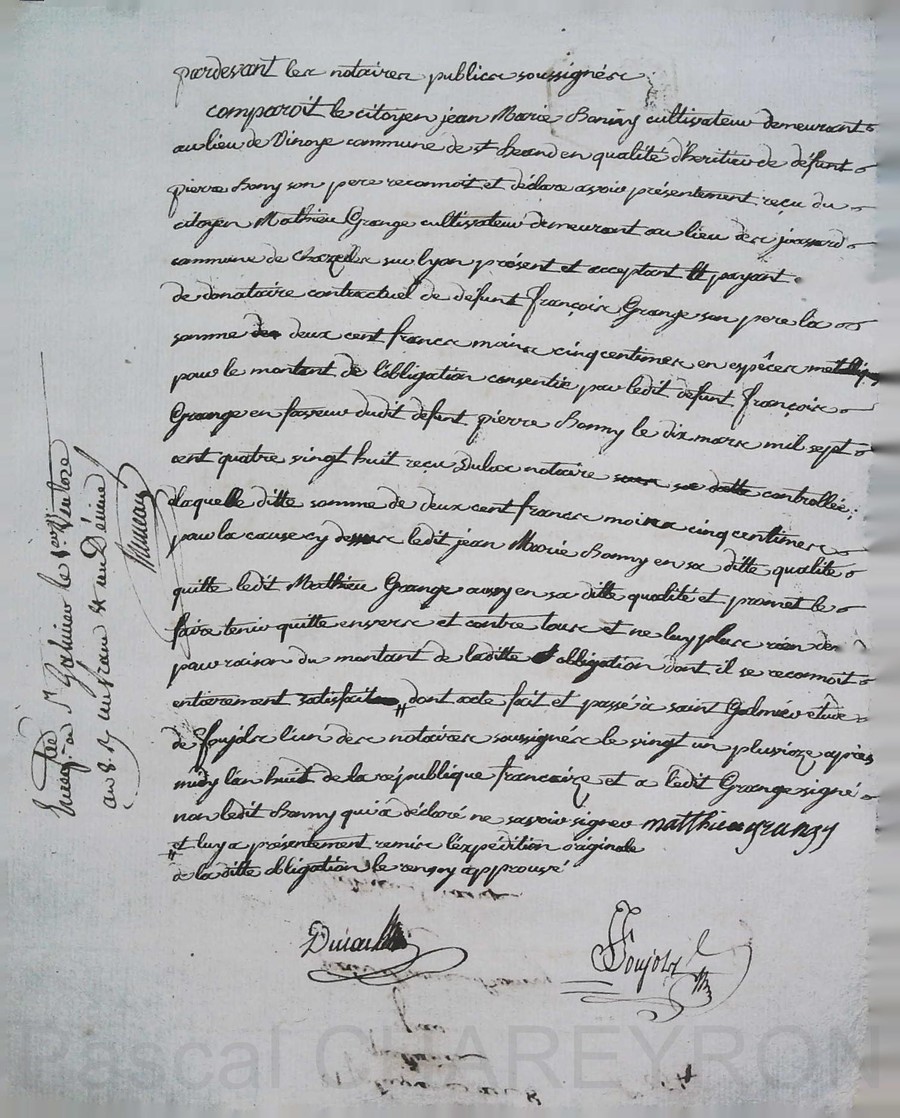 pardevant les notaires publics soussignés
comparoit le citoyen jean Marie Bonny cultivateur demeurant
au lieu de Vinoye commune de st heand en qualité d'heritier de défunt
pierre Bony son pere reconnoit et déclare avoir présentement reçu du
citoyen Mathieu Grange cultivateur demeurant au lieu des joassard
commune de chazelle sur lyon présent et acceptant et payant
de donataire contractuel de défunt françois Grange son pere la
somme de deux cent francs moins cinq centimes en espèces
pour le montant de l'obligation consentie par ledit défunt françois
Grange en faveur dudit défunt pierre Bonny le dix mars mil sept
cent quatre vingt huit reçu Dulac notaire controllée;
laquelle ditte somme de deux cent francs moins cinq centimes
pour la cause cy dessus ledit jean Marie Bonny en sa ditte qualité
quitte ledit Mathieu Grange aussy en sa ditte qualité et promet le
faire tenir quitte envers et contre tous et ne luy plus rien
pour raison du montant de laditte obligation dont il se reconnoit
entierement satisfait dont acte fait et passé à saint Galmier étude
de foujols l'un des notaires soussignés le vingt un pluvioze après
midy l'an huit de la république française et a ledit Grange signé
non ledit Bonny qui a déclaré ne savoir signer matthieu grangy
et luy a présentement remis l'expédition originale
de la ditte obligation le renvoy approuvé
Foujols
Enregistré à St Galmier le 1er Ventose
an 8. R un franc et un Décime
Pascal CHAREYRON